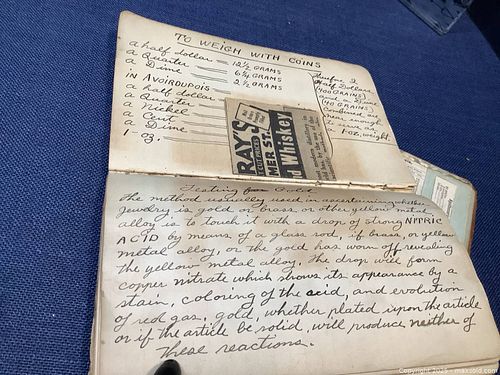 TO WEIGH WITH COINS
a half dollar = 12½ GRAMS
a Quarter = 6¼ GRAMS
a Dime = 2½ GRAMS
IN AVOIRDUPOIS =
a half dollar =
a Quarter
a Nickel
a Cent
a Dime
1-oz.
Therefore 2
Half Dollars
(400 GRAINS)
and a Dime
(40 GRAINS)
Combined are
near enough
to serve as
a 1-oz. weight.
RAY'S
MER ST.
d Whiskey
Testing for Gold
The method usually used in ascertaining whether
jewelry is gold or brass, or other yellow metal
alloy is to touch it with a drop of strong NITRIC
ACID by means of a glass rod, if brass, or yellow
metal alloy, or the gold has worn off revealing
the yellow metal alloy, the drop will form
copper nitrate which shows its appearance by a
stain, coloring of the acid, and evolution
of red gas. gold, whether plated upon the article
or if the article be solid, will produce neither of
these reactions.
Copyright 2025 - maxsold.com